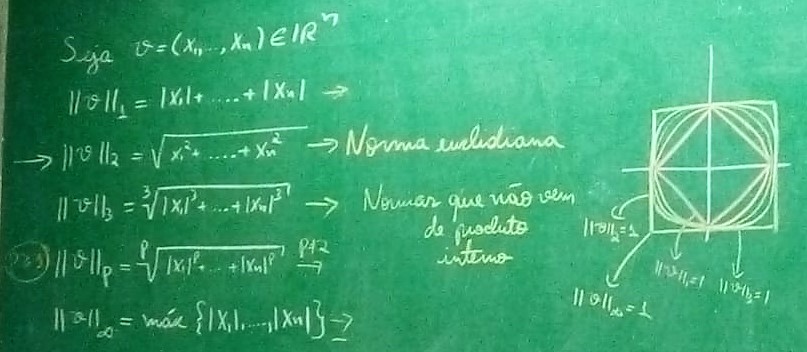 Seja v = (x₁,..., xₙ) ∈ ℝⁿ
||v||₁ = |x₁| + ..... + |xₙ| →
→ ||v||₂ = √(x₁² + ..... + xₙ²) → Norma euclidiana
||v||₃ = ∛(|x₁|³ + ... + |xₙ|³) → Normas que não vem
de produto
interno
p≥1 ||v||ₚ = ᵖ√(|x₁|ᵖ + ... + |xₙ|ᵖ) p≠2 →
||v||∞ = máx {|x₁|,....,|xₙ|} →
||v||₂ = 1
||v||₁ = 1
||v||₃ = 1
||v||∞ = 1